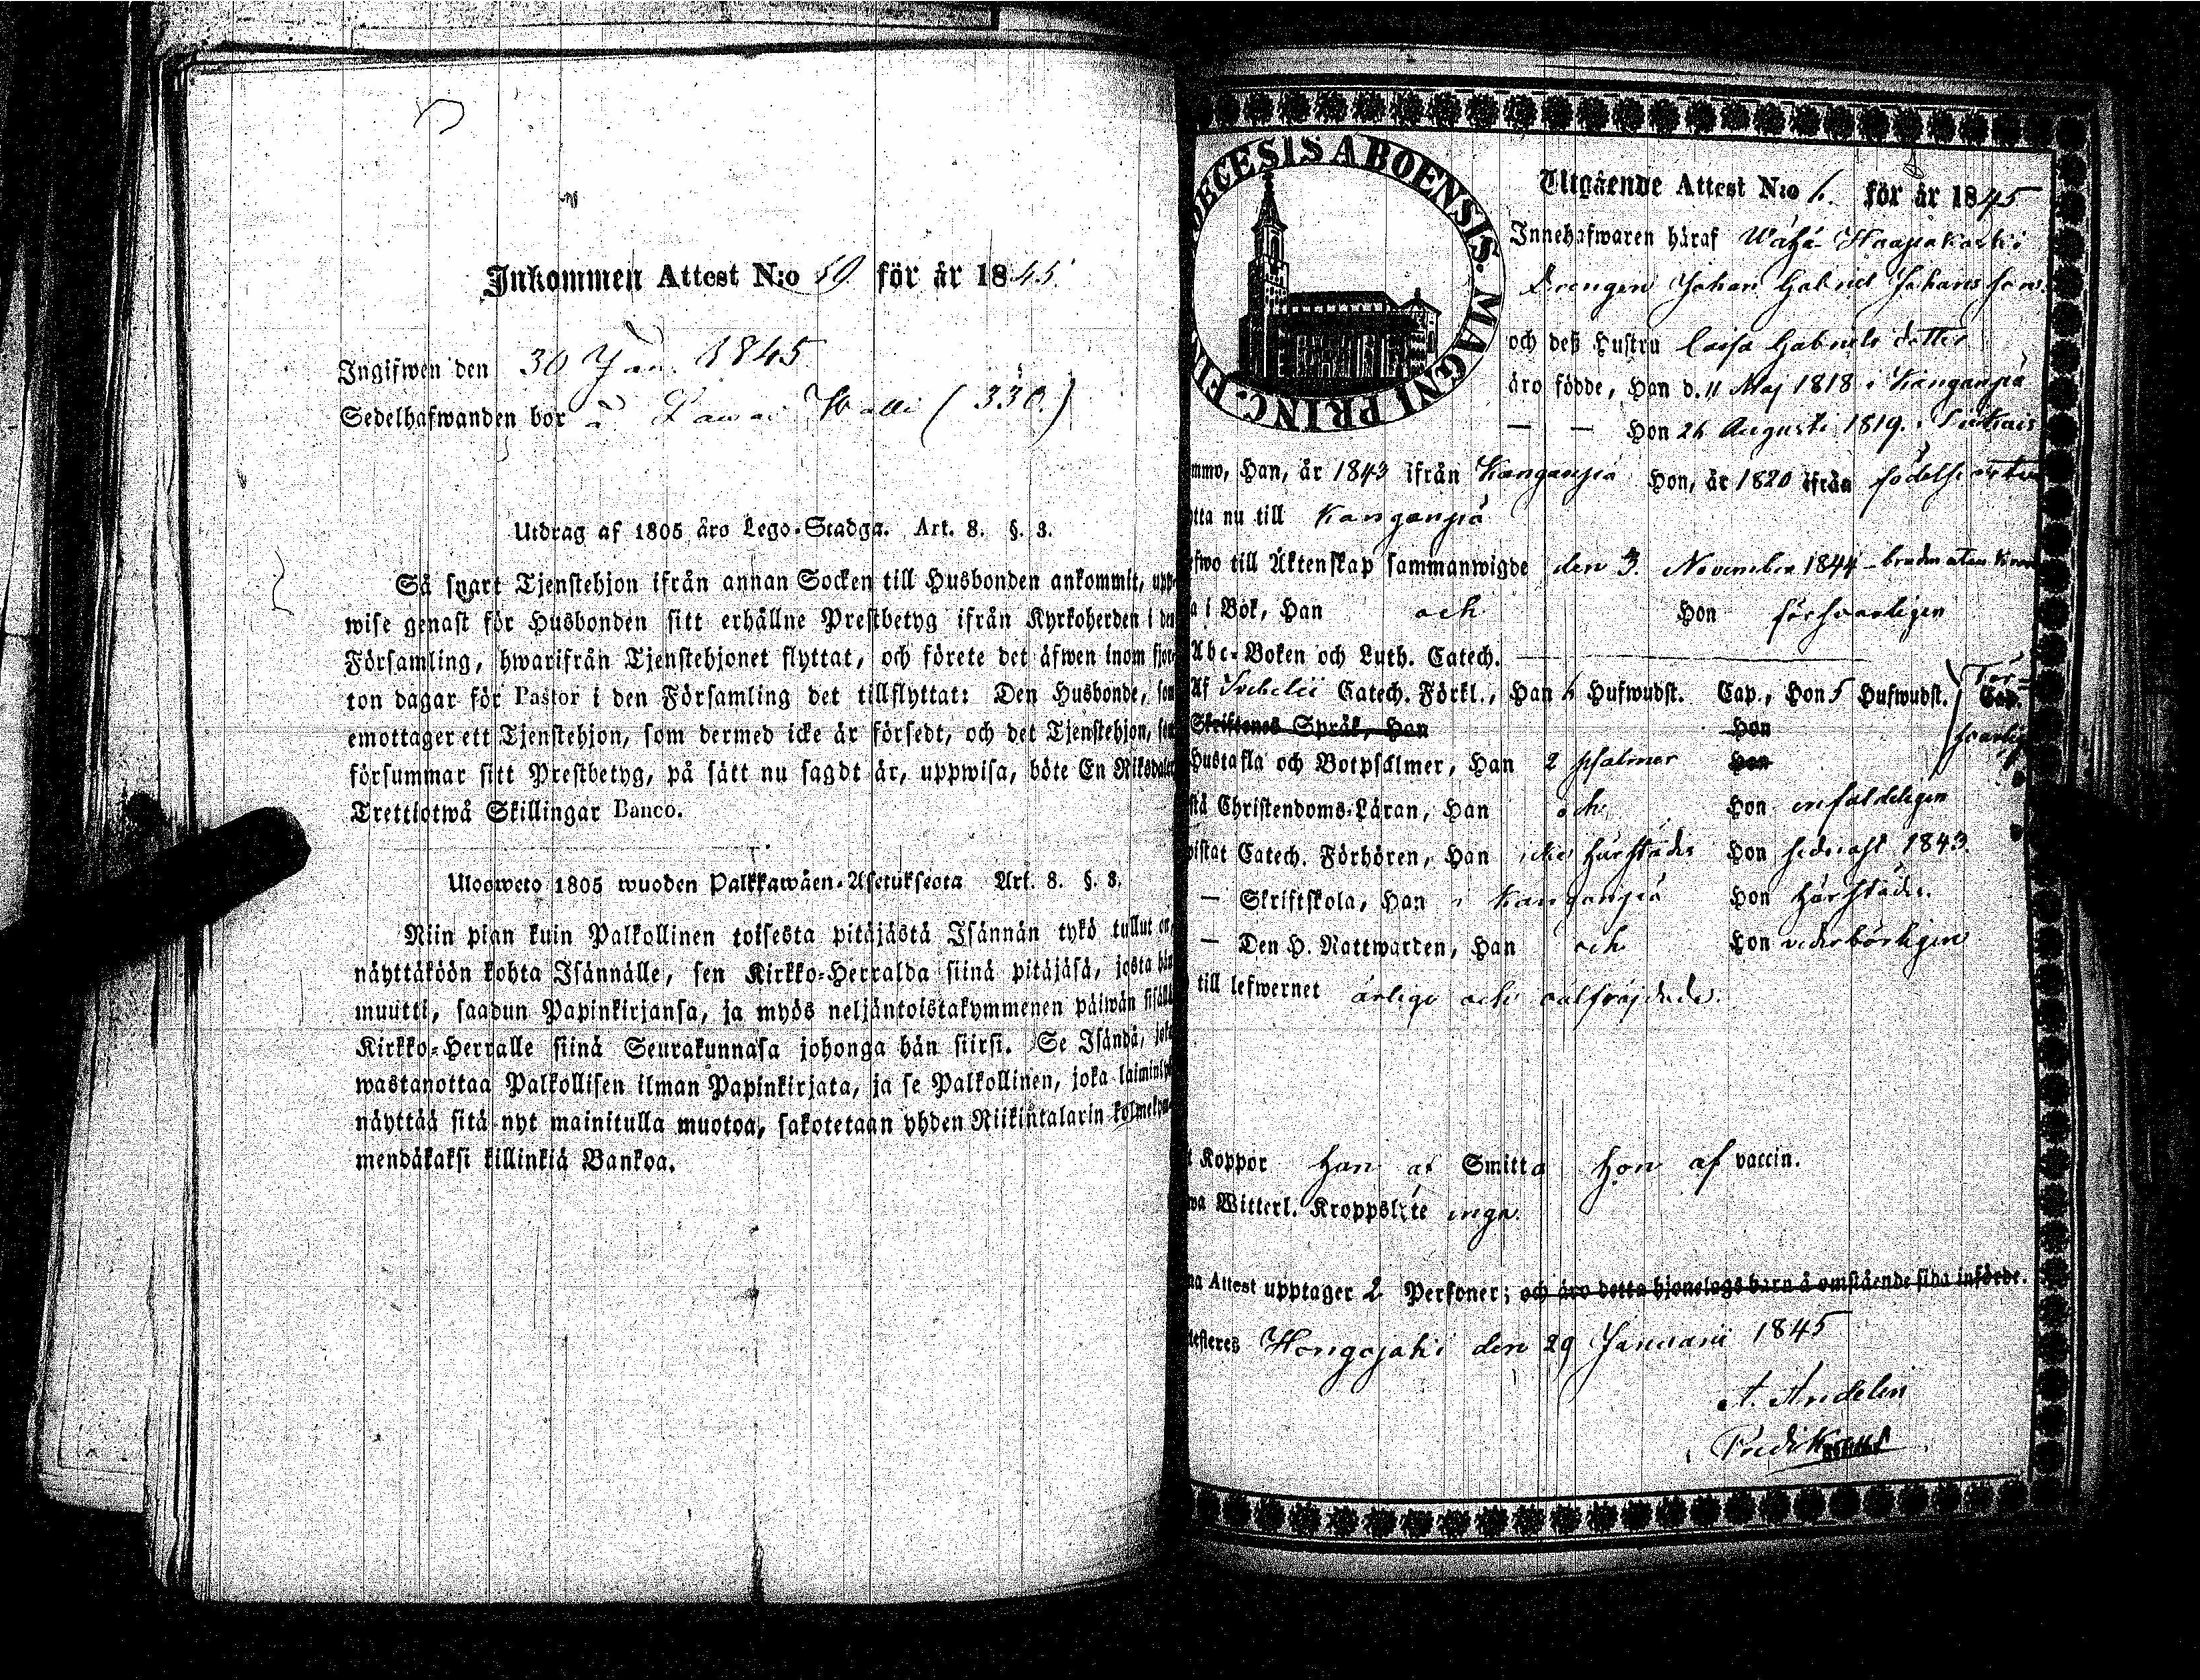 Inkommen Attest N:o 59 för år 1845.
Ingifwen den 30 Jan. 1845
Sedelhafwanden bor å (330.)
Utdrag af 1805 års Lego-Stadga. Art. 8. §. 3.
Så snart Tjenstehjon ifrån annan Socken till Husbonden ankommit, upp-
wise genast för Husbonden sitt erhållne Prestbetyg ifrån Kyrkoherden i den
Församling, hwarifrån Tjenstehjonet flyttat, och förete det äfwen inom fjor-
ton dagar för Pastor i den Församling det tillflyttat: Den Husbonde, som
emottager ett Tjenstehjon, som dermed icke är försedt, och det Tjenstehjon, som
försummar sitt Prestbetyg, på sätt nu sagdt är, uppwisa, böte En Riksdaler
Trettiotwå Skillingar Banco.
Ulosweto 1805 wuoden Palkkawäen-Asetuksesta Art. 8. §. 3.
Niin pian kuin Palkollinen toisesta pitäjästä Isännän tykö tullut on,
näyttäköön kohta Isännälle, sen Kirkko-Herralda siinä pitäjäsä, josta hän
muutti, saadun Papinkirjansa, ja myös neljäntoistakymmenen päiwän sisällä
Kirkko-Herralle siinä Seurakunnasa johonga hän siirsi. Se Isändä, joka
wastanottaa Palkollisen ilman Papinkirjata, ja se Palkollinen, joka laiminlyö
näyttää sitä nyt mainitulla muotoa, sakotetaan yhden Riikintalarin kolmekym-
mendäkaksi killinkiä Bankoa.
DECESIS ABOENSIS. MAGNI PRINC. FIN
Utgående Attest N:o 6. för år 1845
Innehafwaren häraf Wähä Haapakoski
Drengen Johan Gabriel Johansson
och deß Hustru Caisa Gabrielsdotter
äro födde, Han d. 11 Maj 1818 i Kanganpä
— — Hon 26 Augusti 1819. i Siikais
mmo, Han, år 1843 ifrån Kanganpä Hon, år 1820 ifrån födelseorten
tta nu till Kanganpä
fwo till Äktenskap sammanwigde den 3. November 1844 - bruden utan
a i Bok, Han och Hon försvarligen
Abc-Boken och Luth. Catech.
Af Svebelii Catech. Förkl., Han 6 Hufwudst. Cap., Hon 5 Hufwudst. Cap. För-
Skriftenes Språk, Han Hon svarlig
Hustafla och Botpsalmer, Han 2 psalmer Hon
stå Christendoms-Läran, Han och Hon enfaldeligen
istat Catech. Förhören, Han icke härstädes Hon sednast 1843.
— Skriftskola, Han i Kanganpä Hon härstädes.
— Den H. Nattwarden, Han och Hon vederbörligen
till lefwernet ärlige och välfräjdade.
t Koppor Han af Smitta Hon af vaccin.
wa Witterl. Kroppslyte inga.
na Attest upptager 2 Personer; och äro detta hjonelags barn å omstående sida införde.
testeres Hongojoki den 29 Januarii 1845
A. Andelin